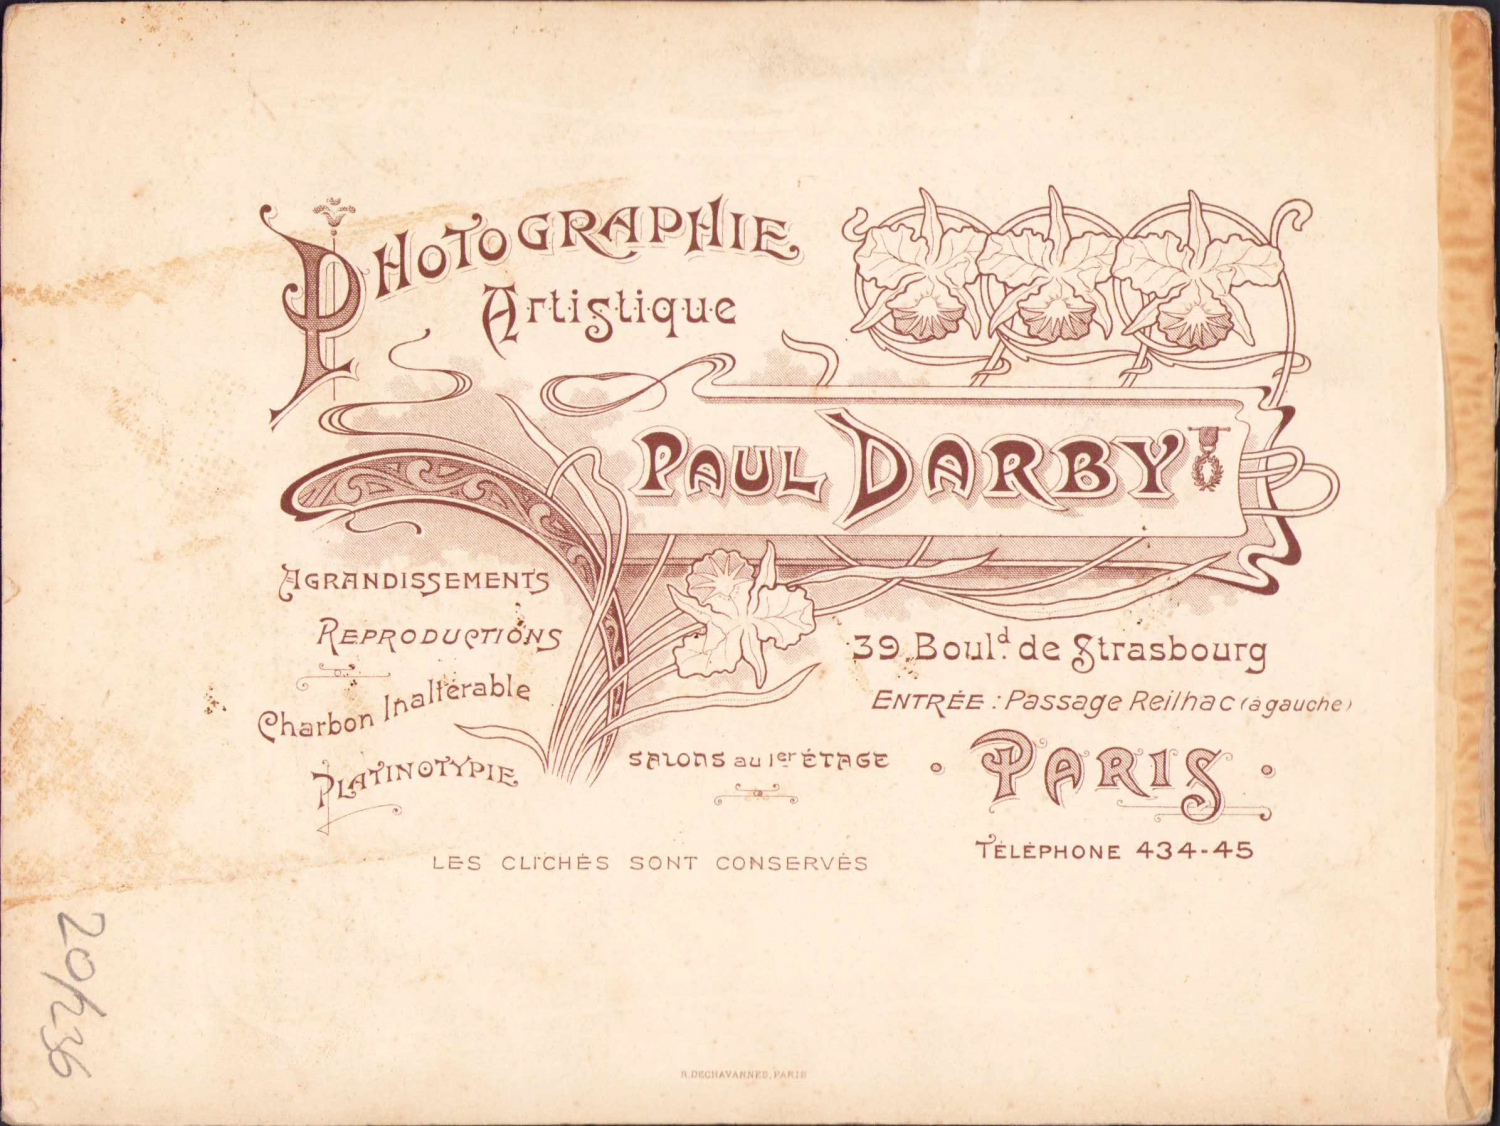 PHOTOGRAPHIE
Artistique
PAUL DARBY
AGRANDISSEMENTS
REPRODUCTIONS
Charbon Inaltérable
PLATINOTYPIE
39 Boulᵈ. de Strasbourg
ENTRÉE : Passage Reilhac (à gauche)
SALONS au 1er ÉTAGE
PARIS
TÉLÉPHONE 434-45
LES CLICHÉS SONT CONSERVÉS
R. DECHAVANNES, PARIS